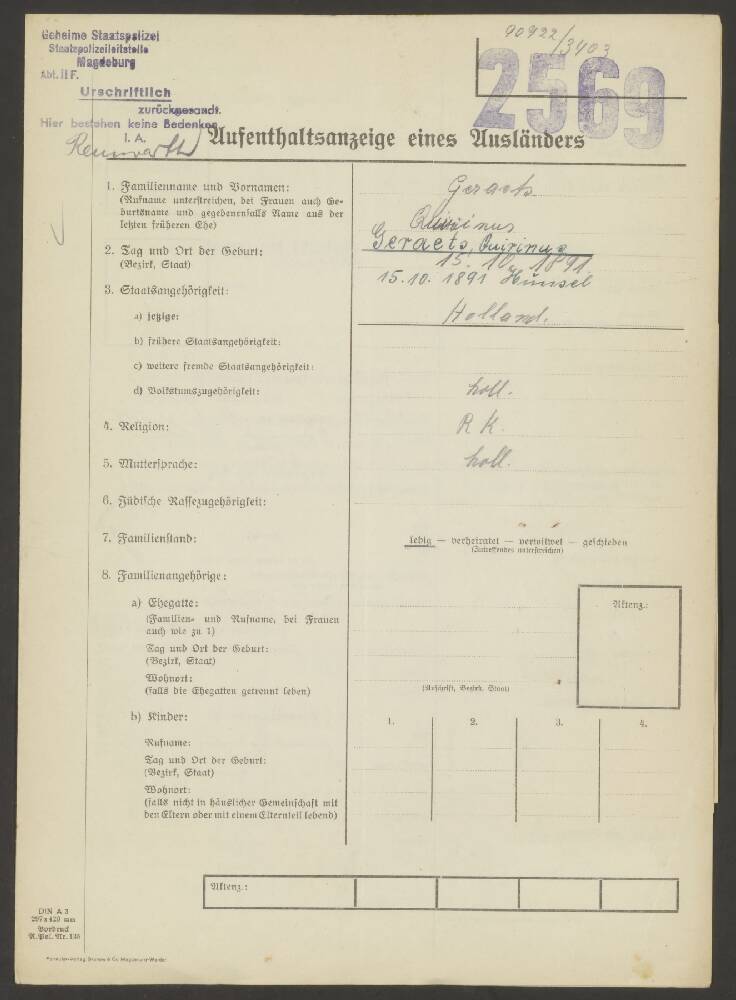 Geheime Staatspolizei
Staatspolizeileitstelle
Magdeburg
Abt. II F.
Urschriftlich
zurückgesandt.
Hier bestehen keine Bedenken
I. A.
90922/3403
2569
Aufenthaltsanzeige eines Ausländers
1. Familienname und Vornamen:
(Rufname unterstreichen, bei Frauen auch Ge-
burtsname und gegebenenfalls Name aus der
letzten früheren Ehe)
Geraets
Quirinus
Geraets, Quirinus
2. Tag und Ort der Geburt:
(Bezirk, Staat)
15. 10. 1891.
15.10. 1891 Hunsel
3. Staatsangehörigkeit:
a) jetzige:
Holland.
b) frühere Staatsangehörigkeit:
c) weitere fremde Staatsangehörigkeit:
d) Volkstumszugehörigkeit:
holl.
4. Religion:
R K.
5. Muttersprache:
holl.
6. Jüdische Rassezugehörigkeit:
7. Familienstand:
ledig — verheiratet — verwitwet — geschieden
(Zutreffendes unterstreichen)
8. Familienangehörige:
a) Ehegatte:
(Familien- und Rufname, bei Frauen
auch wie zu 1)
Tag und Ort der Geburt:
(Bezirk, Staat)
Wohnort:
(falls die Ehegatten getrennt leben)
(Anschrift, Bezirk, Staat)
Aktenz.:
b) Kinder:
1. 2. 3. 4.
Rufname:
Tag und Ort der Geburt:
(Bezirk, Staat)
Wohnort:
(falls nicht in häuslicher Gemeinschaft mit
den Eltern oder mit einem Elternteil lebend)
Aktenz.:
DIN A 3
297 x 420 mm
Vordruck
A. Pol. Nr.